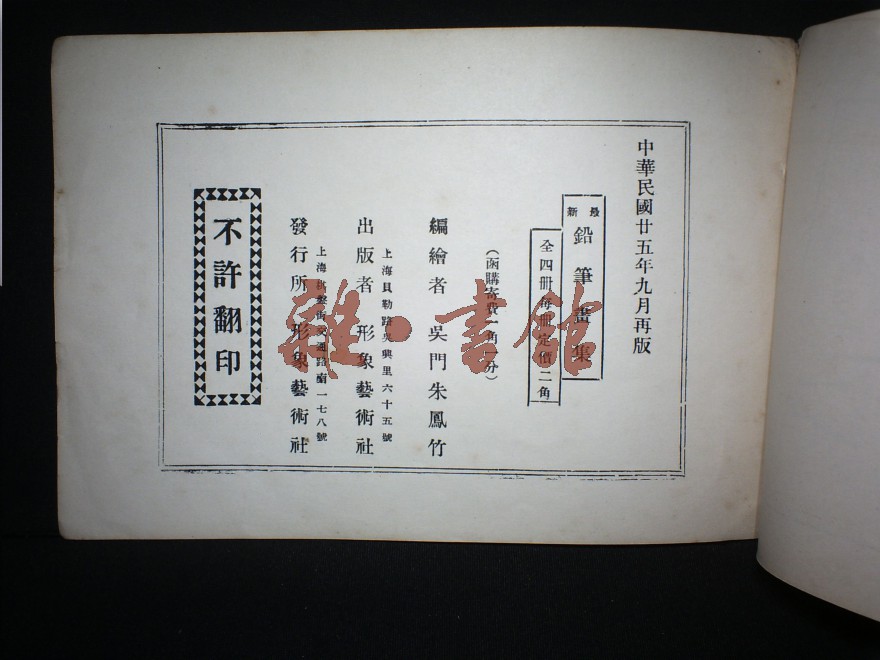 中華民國廿五年九月再版
最新
鉛筆畫集
全四册每册定價二角
(函購寄費一角一分)
編繪者 吳門朱鳳竹
上海貝勒路吳興里六十五號
出版者 形象藝術社
上海棋盤街交通路南一七八號
發行所 形象藝術社
不許翻印
雜·書館